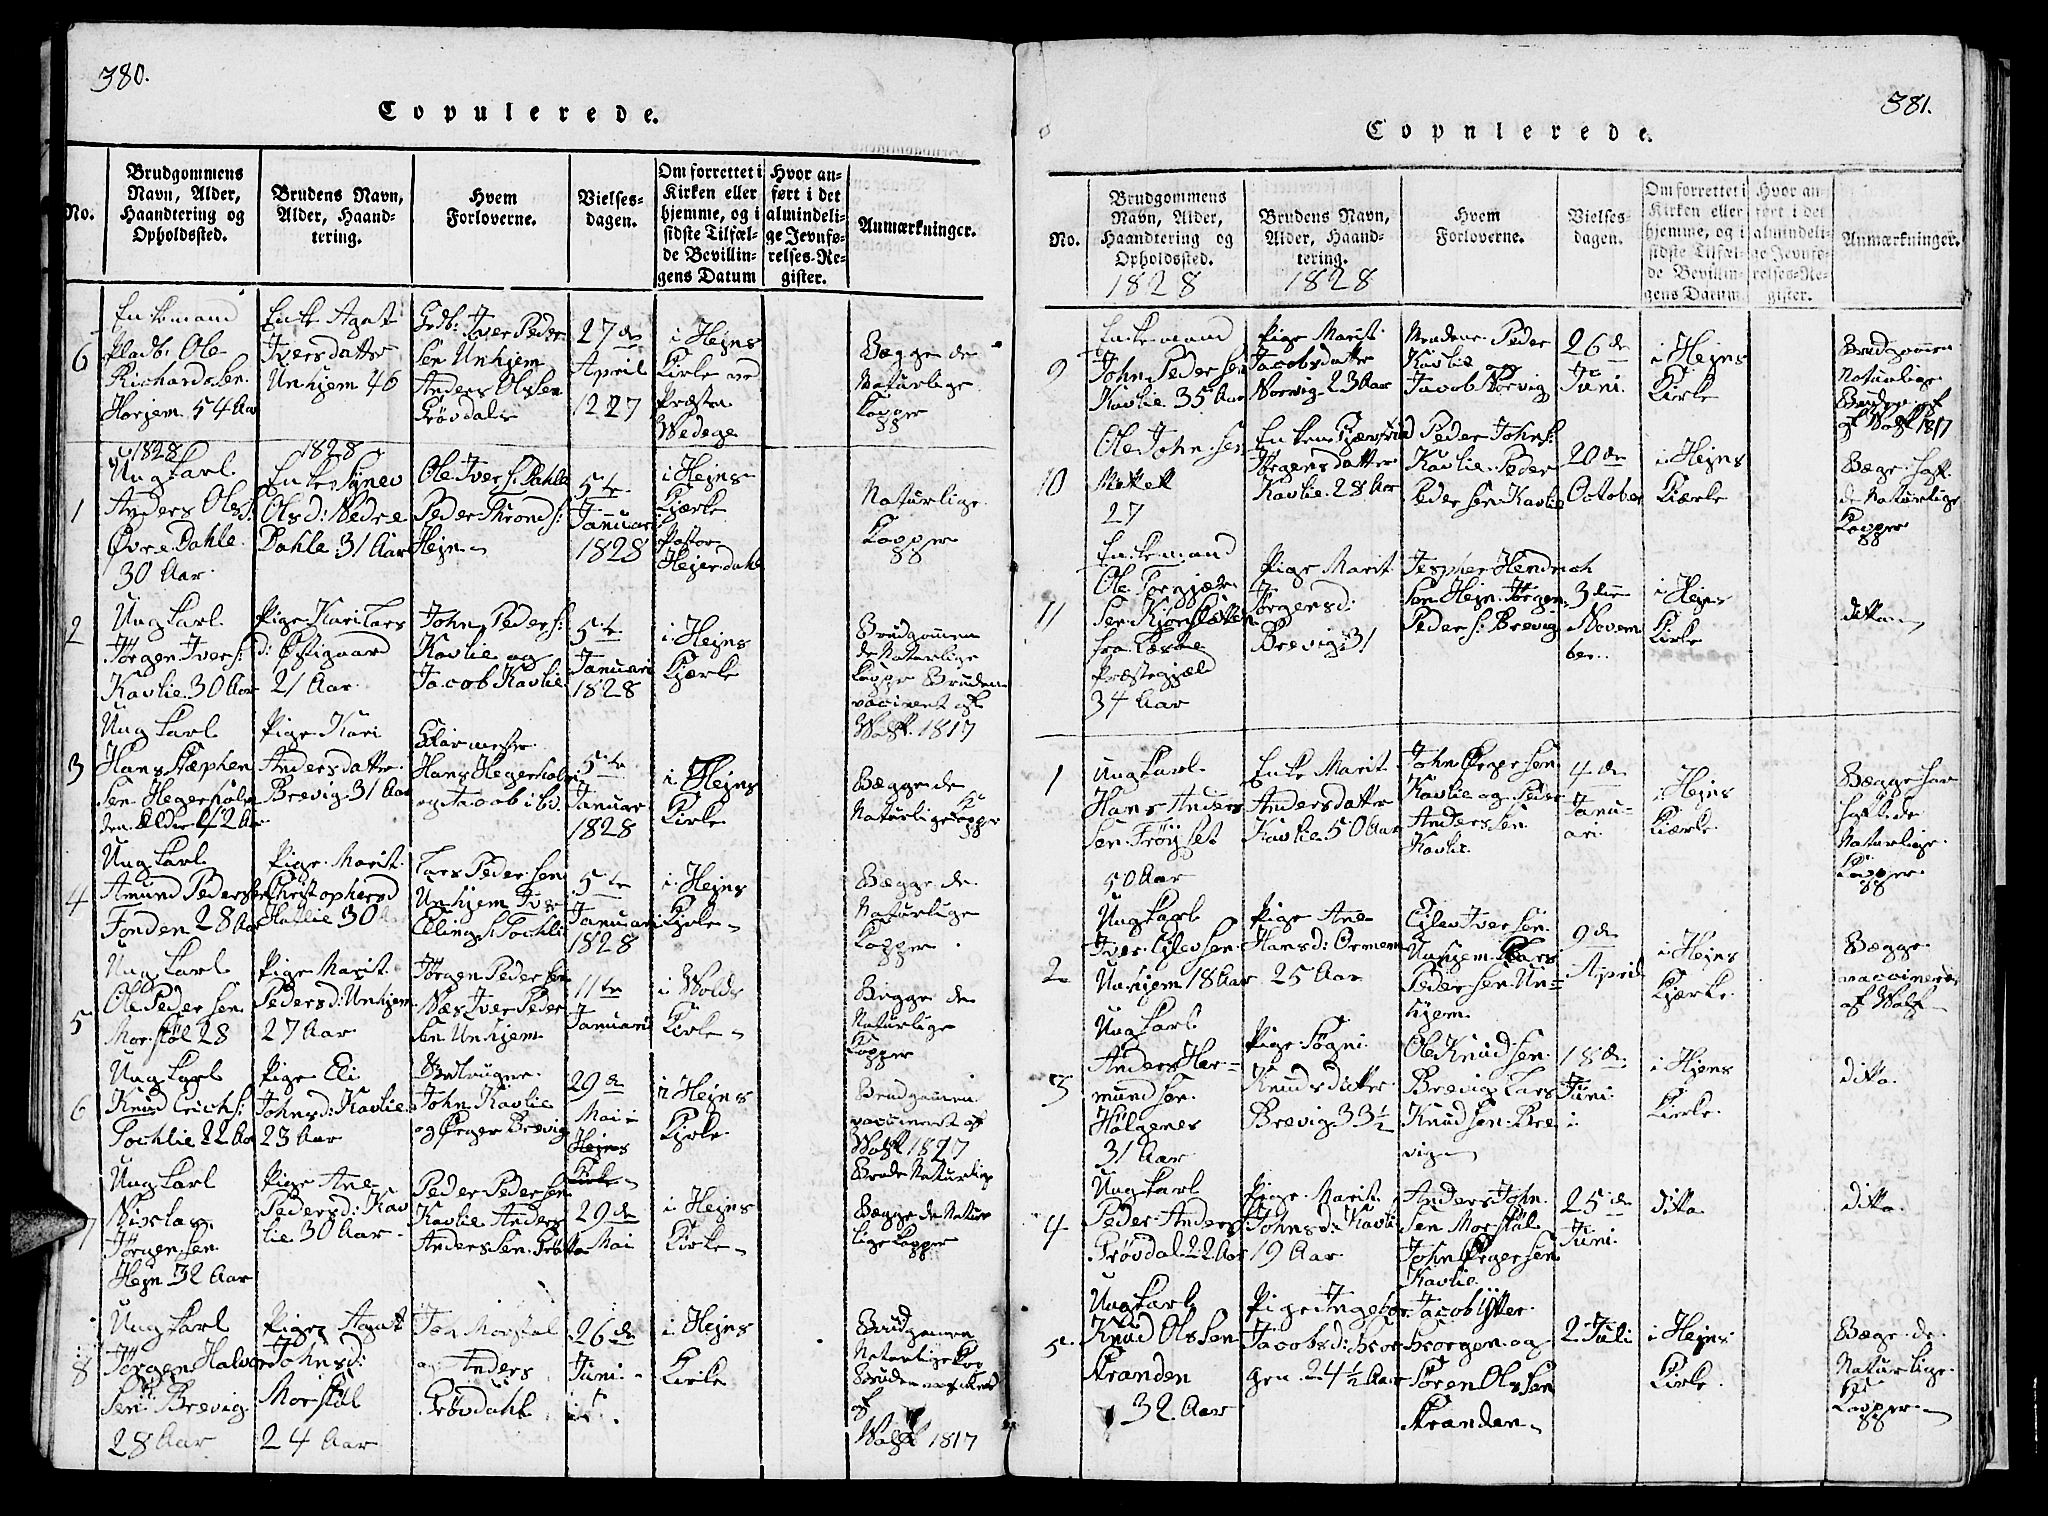 380.
Copulerede.
No.
Brudgommens
Navn, Alder,
Haandtering og
Opholdssted.
Brudens Navn,
Alder, Haand-
tering.
Hvem
Forloverne.
Vielses-
dagen.
Om forrettet i
Kirken eller
hjemme, og i
sidste Tilfæl-
de Bevillin-
gens Datum
Hvor an-
ført i det
almindeli-
ge Jevnfø-
relses-Re-
gister.
Anmærkninger.
6
Enkemand
Pladb: Ole
Richardsen
Horjem 54 Aar
Enke Agat
Iversdatter
Unhjem 46
Grdb: Iver Peder
sen Unhjem
Anders Olssen
Grøvdal
27de
April
1827
i Hejns
Kirke ved
Præsten
Wedege
Bægge de
Naturlige
Kopper
1828
1828
1
Ung Karl
Anders Olss:
Øvre Dahle
30 Aar
Enke Synev
Olsd: Nedre
Dahle 31 Aar
Ole Ivers: Dahle
Peder Thronds:
Hejn
5te
Januari
1828
i Hejns
Kjærke
Pastor
Hejerdahl
Naturlige
Kopper
2
Ung Karl
Jørgen Ivers:
Kavlie 30 Aar
Pige Kari Lars
d: Østigaard
21 Aar
John Peders:
Kavlie og
Jacob Kavlie
5te
Januari
1828
i Hejns
Kjærke
Brudgommen
de Naturlige
Kopper Bruden
vaccinert af
Wolf. 1817
3
Ung Karl
Hans Stephen
sen Hegerholm
den Ældre 42 Aar
Pige Kari
Andersdatter
Brevig 31 Aar
Hans Hegerholm
og Jacob ibv.
5te
Januar
1828
i Hejns
Kirke
Bægge de
Naturlige Kopper
4
Ung Karl
Amund Pedersen
Fonden 28 Aar
Pige Marit
Christophersd
Kavlie 30 A
Lars Pedersen
Unhjem Iver
Ellings: Sochlie
5te
Januari
1828
i Hejns
Kjrke
Bægge de
Naturlige
Kopper
5
Ung Karl
Ole Pedersen
Morstøl 28
Pige Marit
Pedersd: Unhjem
27 Aar
Jørgen Pedersen
Næs Iver Peder
sen Unhjem
11te
Januari
i Wolds
Kirke
Begge de
Naturlige
Kopper
6
Ung Karl
Knud Erichs:
Sochlie 22 Aar
Pige Eli
Johnsd: Kavlie
23 Aar
John Kavlie
og Ørger Brevig
29de
Mai i
Hejns
Kirke
i Hejns
Kjrke
Brudgommen
vaccinert af
Wolf 1817
Brude Naturlige
7
Ung Karl
Nicolas
Jørgensen
Hejn 32 Aar
Pige Ane
Pedersd: Kav
lie 30 Aar
Peder Pedersen
Kavlie Anders
Anderssen
29de
Mai
i Hejns
Kirke
Bægge de Natur
lige Kopper
8
Ung Karl
Jørgen Halvor
sen Brevig
28 Aar
Pige Agat
Johnsd:
Morstøl
24 Aar
Joh Morstøl
og Anders
Grøvdahl
26de
Juni
i Hejns
Kirke
Brudgommen
Naturlige Kop
Bruden vaccinerd
af
Wolf 1817
381.
Copulerede.
No.
Brudgommens
Navn, Alder,
Haandtering og
Opholdssted.
1828
Brudens Navn,
Alder, Haand-
tering.
1828
Hvem
Forloverne.
Vielses-
dagen.
Om forrettet i
Kirken eller
hjemme, og i
sidste Tilfæl-
de Bevillin-
gens Datum.
Hvor an-
ført i det
almindeli-
ge Jevnfø-
relses-Re-
gister.
Anmærkninger.
9
Enkemand
John Pedersen
Kavlie 35 Aar
Pige Marit
Jacobsdatter
Norvig 23 Aar
Mendene Peder
Kavlie og
Jacob Norvig
26de
Juni
i Hejns
Kirke
Brudgommen
Naturlige
Bruden af
Wolf 1817
10
Ole Johnsen
27
Enken
Jørgensdatter
Kavlie 28 Aar
Peder Johns:
Kavlie Peder
Pedersen Kavlie
20de
October
i Hejns
Kiærke
Bæge haft
de Naturlige
Kopper
11
Enkemand
Ole Torgjer
sen
fra
Præstegjæld
34 Aar
Pige Marit
Jørgensd:
Brevig 31
Jesper Hendrich
sen Hejn Jørgen
Peders: Brevig
3die
Novem
ber
i Hejns
Kirke
ditto
1
Ung Karl
Hans Anders
sen Frøyset
50 Aar
Enke Marit
Andersdatter
Kavlie 50 Aar
John Ørgersen
Kavlie og Peder
Anderssen
Kavlie
4de
Janu-
ari
i Hejns
Kiærke
Bægge har
haft de
Naturlige
Kopper
2
Ung Karl
Iver Eilevsen
Unhjem 18 Aar
Pige Ane
Hansd: Ormem
25 Aar
Eilev Iversen
Unhjem Lars
Pedersen Un-
hjem
9de
April
i Hejns
Kjærke
Bægge
vaccinerede
af Wolf
3
Ung Karl
Anders Her-
mundsen
Holgenes
31 Aar
Pige Søgni
Knudsdatter
Brevig 33½
Ole Knudsen
Brevig Lars
Knudsen Bre
vig
18de
Juni
i Hjens
Kierke
ditto
4
Ung Karl
Peder Anders
Grøvdal 22 Aar
Pige Marit
Johnsd: Kavli
19 Aar
Anders John
sen Morstøl
John Ørgersen
Kavlie
25de
Juni
ditto
ditto
5
Ung Karl
Knud Olssen
Stranden
32 Aar
Pige Ingebor
Jacobsd: Hor
gen 24½ Aar
Jacob Ytter
Horgen og
Søren Olssen
Stranden
2 Juli
i Hejns
Kirke
Bæge de
Naturlige
Kopper